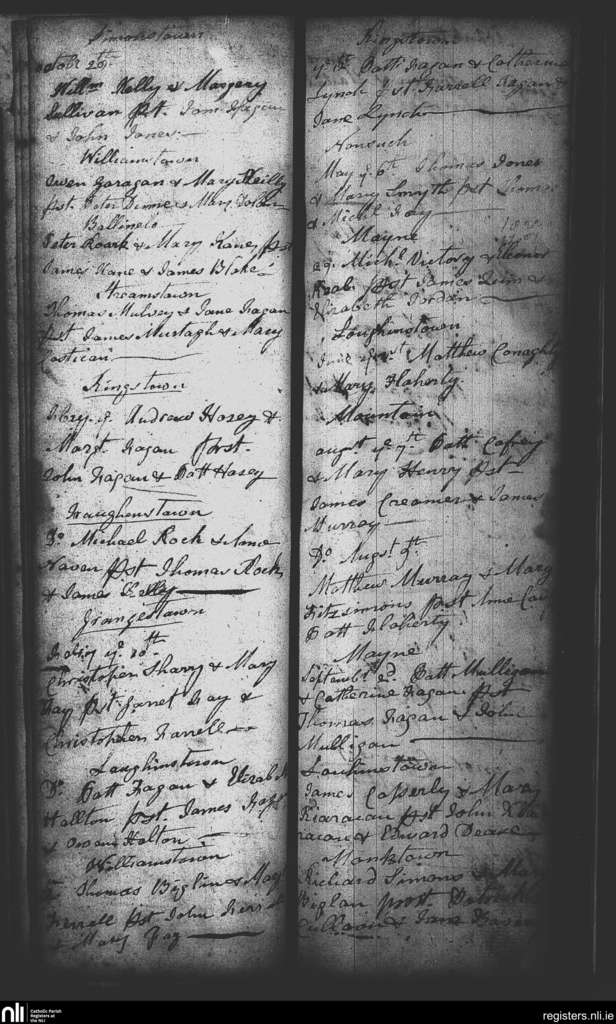 Simonstown
Octobr 26th
Willm Kelly & Margery
Sullivan pst. James Fagan
& John Jones
Williamstown
Owen Garagan & Mary Reilly
pst. Peter Dinne & Mary
Ballinelo
Peter Roark & Mary Kane pst
James Kane & James Blake
Streamstown
Thomas Mulvey & Jane Fagan
pst James Murtagh & Mary
Costican
Kingstown
Febry. ye. Andrew Hosey &
Margt. Fagan prst.
John Fagan & Patt Hosey
Fraughenstown
Do. Michael Rock & Anne
Naven pst Thomas Rock
& James Kelly
Grangestown
Febry ye. 10th
Christopher Sharry & Mary
Fay pst. Janet Fay &
Christopher Farrell
Loughinstown
Do. Patt Fagan & Elizabth
Halton pst. James
& Owen Halton
Williamstown
Thomas Biglin & Mary
Ferrell pst John
& Mary Fay
Kingstown
Patt Fagan & Catherine
Lynch pst Farrell Fagan &
Jane Lynch
Nonsuch
May ye 6th Thomas Jones
& Mary Smyth pst
& Michl Fay
Mayne
Michl. Victory &
pst James &
Elizabeth Jordan
Loughinstown
June ye 1st Matthew Conaghty
& Mary Flaherty
Mountain
augst ye 7th Patt Cafrey
& Mary Henry pst
James Creamer & James
Murray
Do. Augst 9th
Matthew Murray & Mary
Fitzsimons pst Anne
Patt Flaherty
Mayne
Septembr 2d. Patt Mulligan
& Catherine Fagan pst
Thomas Fagan & John
Mulligan
Loughinstown
James Casserly & Mary
Kiaracan pst John
& Edward Deane
Monktown
Richard Simons & Mary
Biglan prst Patrick
& Jane
nli
Catholic Parish
Registers at
the NLI
registers.nli.ie